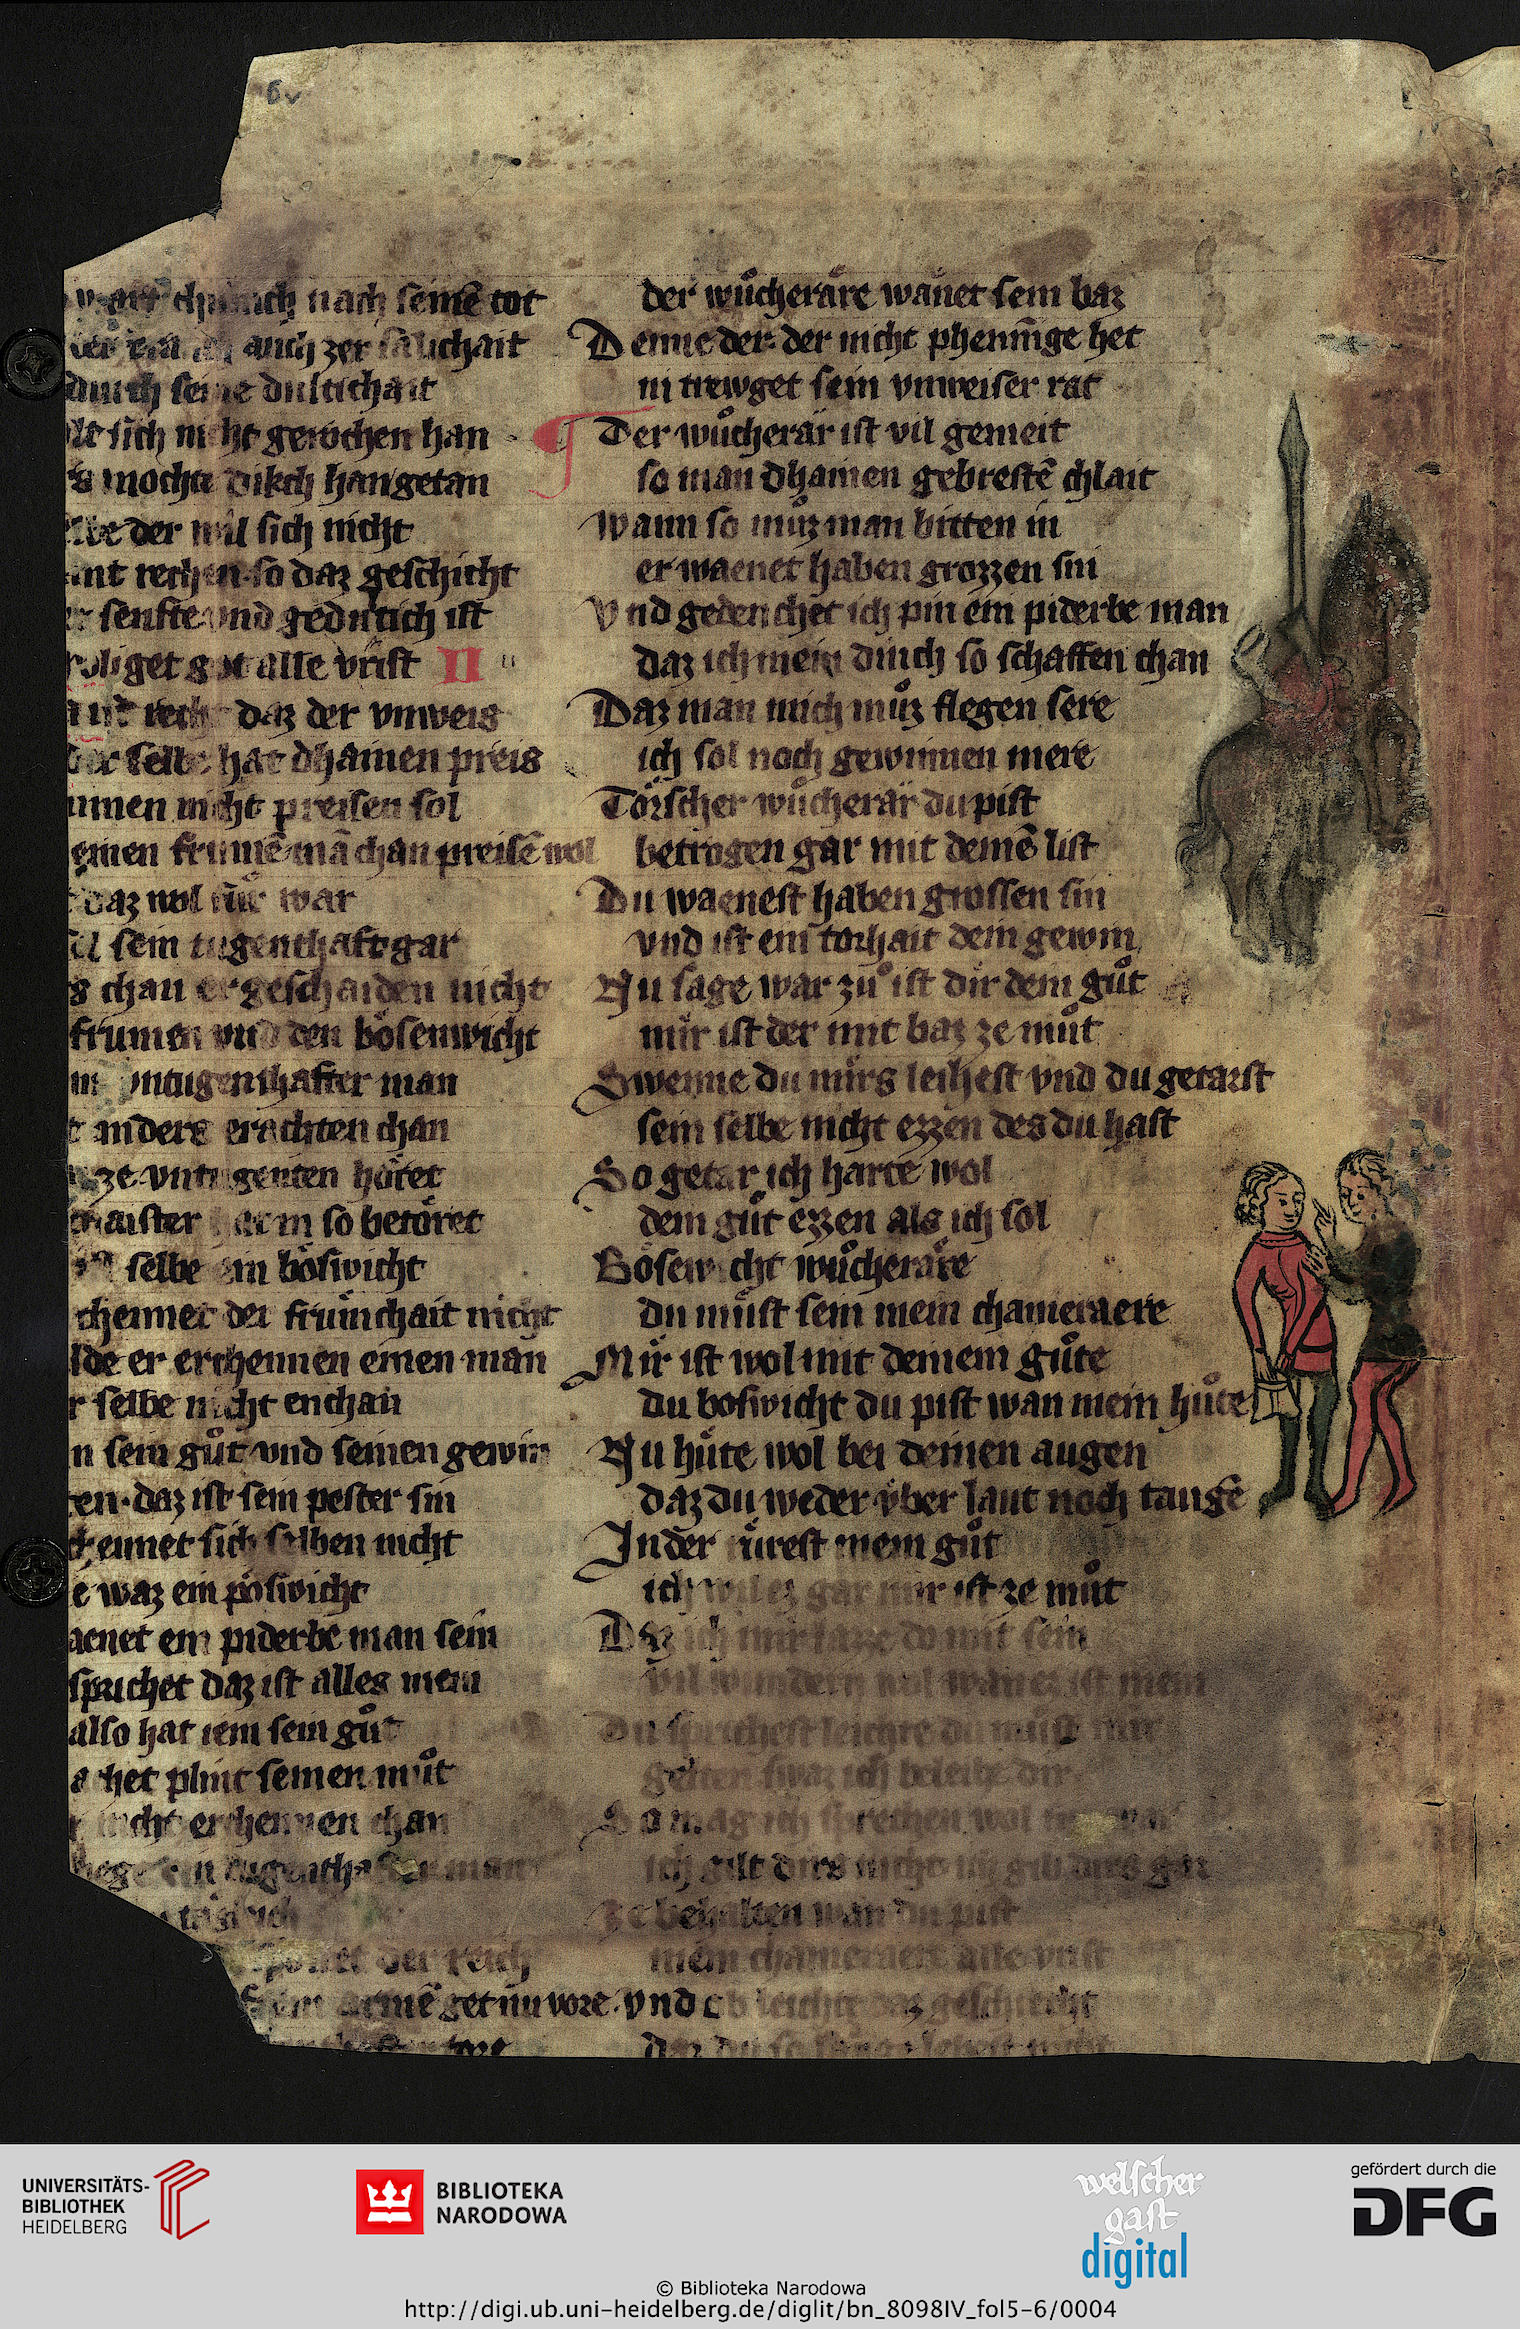 6v
nach seinē tot
auch zer salichait
durch seine dultichait
sich nicht gerochen han
mocht dikch han getan
der wil sich nicht
rechen so daz geschicht
senfte vnd gedultich ist
alle vrist II
recht daz der vnweis
der selbe hat dhainen preis
nicht preisen sol
einen frumē mā chan preisē wol
daz wol für war
sein tugenthaft gar
chan er geschaiden nicht
frumen vnd den bösenwicht
vntugenthafter man
andere erachten chan
ze vntugenten höret
so betöret
selbe ein böswicht
chennet der frümchait nicht
er erchennen einen man
selbe nicht enchan
sein gůt vnd seinen gewin
daz ist sein pester sin
chennet sich selben nicht
waz ein pöswicht
ein piderbe man sein
sprichet daz ist alles mein
also hat iem sein gůt
plint seinen můt
nicht erchennen chan
ein tugenthafter man
der reich
armē get nu vore
der wůcheräre wänet sein baz
Denne der der nicht phennīge het
in trewget sein vnweiser rat
Der wůcherär ist vil gemeit
so man dhainen gebrestē chlait
Wann so můz man bitten in
er waenet haben grozzen sin
Vnd gedenchet ich pin ein piderbe man
daz ich mein dinch so schaffen chan
Daz man mich můz flegen sere
ich sol noch gewinnen mere
Törscher wůcherär du pist
betrogen gar mit deinē list
Du waenest haben grossen sin
vnd ist ein torhait dein gewin
Nu sage war zů ist dir dein gůt
mir ist der mit baz ze můt
Swenne du mirs leihest vnd du getarst
sein selbe nicht ezzen des du hast
So getar ich harte wol
dein gůt ezzen als ich sol
Bösewicht wůcheräre
du můst sein mein chameraere
Mir ist wol mit deinem gůte
du boswicht du pist wan mein hůte
Nu hüte wol bei deinen augen
daz du weder vber laut noch taugē
Inder rürest mein gůt
ich wil ez gar mir ist ze můt
Daz ich mir lazze do mit sein
vil wundern wol wan ez ist mein
Du sprichest leichte du můst mir
gelten swaz ich beleibe dir
So mag ich sprechen wol
ich gilt dirs nicht ich gib dirs gar
Ze behalten wan du pist
mein chameraere alle vrist
vnd ob leichte daz geschicht
daz du so lange lebest nicht
UNIVERSITÄTS-
BIBLIOTHEK
HEIDELBERG
BIBLIOTEKA
NARODOWA
welscher
gast
digital
gefördert durch die
DFG
© Biblioteka Narodowa
http://digi.ub.uni-heidelberg.de/diglit/bn_8098IV_fol5-6/0004